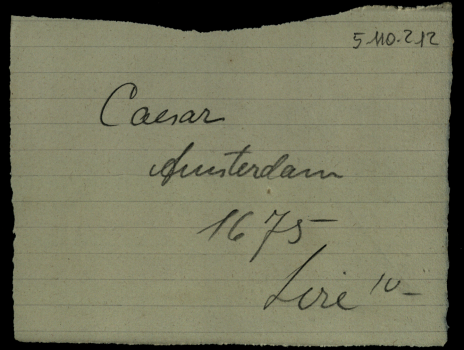 5-110-212
Caesar
Amsterdam
1675
Lire 10-